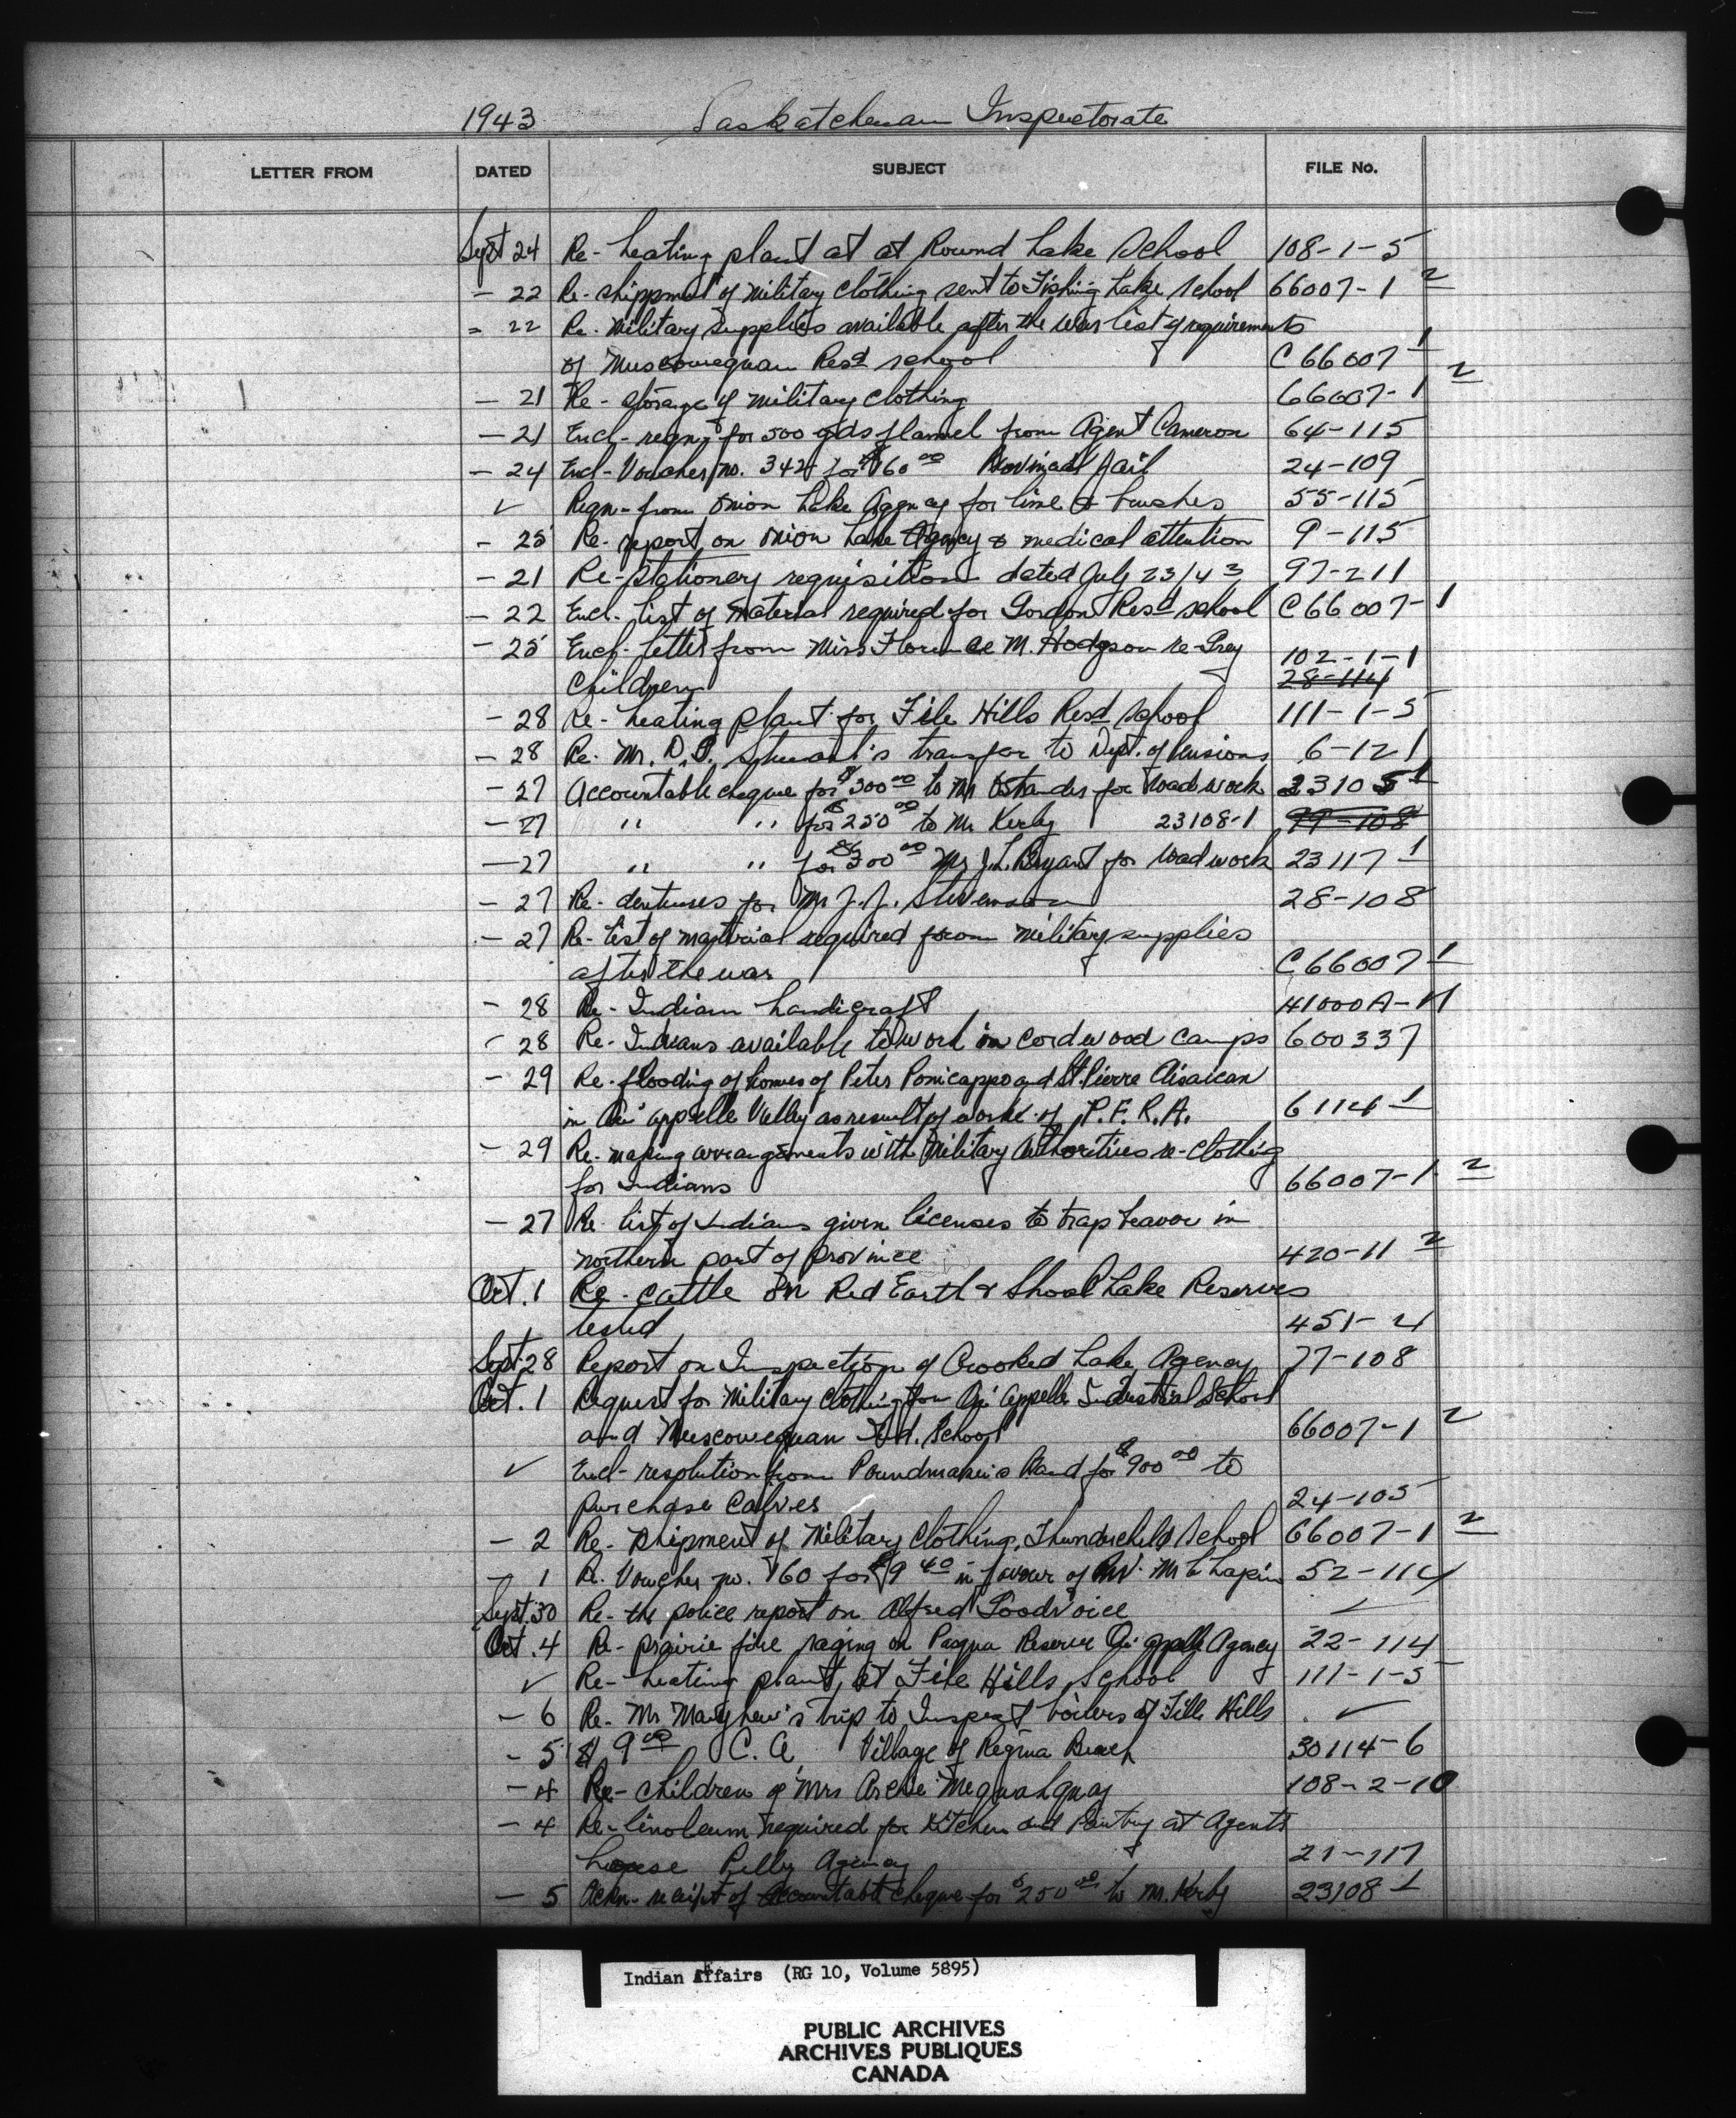 1943 Saskatchewan Inspectorate
LETTER FROM DATED SUBJECT FILE No.
Sept 24 Re- heating plant at at Round Lake School 108-1-5
- 22 Re- shippment of Military Clothing sent to Fishing Lake School 66007-1 2
- 22 Re- Military supplies available after the war list of requirements
of Muscowequan Resd school C 66007 1
- 21 Re- storage of Military Clothing 66007-1 2
- 21 Encl- reqn for 500 yds flannel from Agent Cameron 64-115
- 24 Encl- Voucher no. 342 for $160 00 Provincial Jail 24-109
✓ Reqn- from Onion Lake Agency for lime & brushes 55-115
- 25 Re- report on Onion Lake Agency & medical attention 9-115
- 21 Re- Stationery requisition dated July 23/43 97-211
- 22 Encl- list of Material required for Gordon Resd school C66007-1
- 25 Encl- letter from Miss Florence M. Hodgson re- Grey 102-1-1
Children 28-114
- 28 Re- heating plant for File Hills Resd School 111-1-5
- 28 Re- Mr. D. J. Stewart's transfer to Dept. of Pensions 6-121
- 27 Accountable cheque for $300 00 to Mr Ostrander for road work 23105 1
- 27 " " for $250 00 to Mr Kerby 23108-1 99-108
- 27 " " for $300 00 Mr J.L. Bryant for road work 23117 1
- 27 Re- dentures for Mr J. J. Stevenson 28-108
- 27 Re- list of material required from military supplies
after the war C66007 1
- 28 Re- Indian handicraft 41000A-11
- 28 Re- Indians available to work in cordwood camps 600337
- 29 Re- flooding of homes of Peter Ponicappo and St. Pierre Aisaican
in Qu'appelle Valley as result of work of P.F.R.A. 6114 1
- 29 Re- making arrangements with Military Authorities re- clothing
for Indians 66007-1 2
- 27 Re- list of Indians given licenses to trap beaver in
Northern part of Province 420-11 2
Oct. 1 Re- cattle on Red Earth & Shoal Lake Reserves
tested 451-4
Sept. 28 Report on Inspection of Crooked Lake Agency 77-108
Oct. 1 Request for Military Clothing from Qu'Appelle Industrial School
and Muscowequan Ind. School 66007-1 2
✓ Encl- resolution from Poundmaker's Band for $900 00 to
purchase Calves 24-105
- 2 Re- Shipment of Military Clothing, Thunderchild School 66007-1 2
- 1 Re. Voucher no. 160 for $9 40 in favour of Rev. 52-114
Sept. 30 Re- the police report on Alfred Goodvoice ✓
Oct. 4 Re- prairie fire raging on Pasqua Reserve Qu'appelle Agency 22-114
✓ Re- heating plant at File Hills School 111-1-5
- 6 Re- Mr Mayhew's trip to Inspect boilers of File Hills ✓
- 5 $9 00 C. A Village of Regina Beach 30114-6
- 4 Re- children of Mrs Archie Mequahquay 108-2-10
- 4 Re- linoleum required for Kitchen and Pantry at Agents
house Pelly Agency 21-117
- 5 Ackn- receipt of Accountable cheque for $250 00 to M. Kerby 23108 1
Indian Affairs (RG 10, Volume 5895)
PUBLIC ARCHIVES
ARCHIVES PUBLIQUES
CANADA